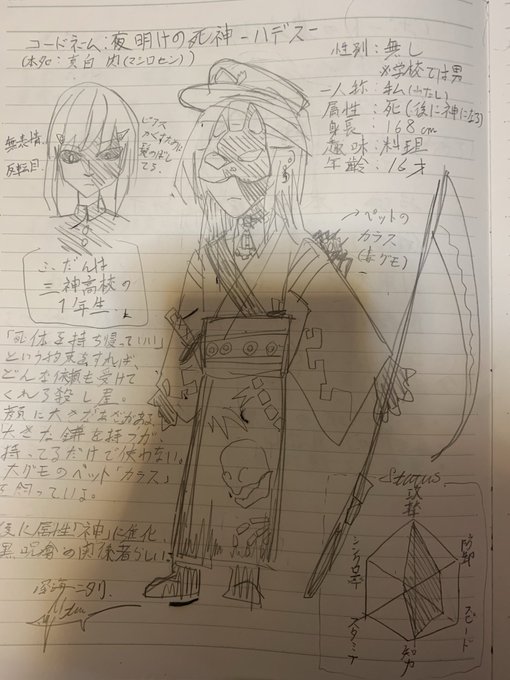 コードネーム:夜明けの死神 -ハデス-
(本名: 真白 (マシロセン))
性別:無し
※学校では男
一人称:私(わたし)
属性:死(後に神になる)
身長:168cm
趣味:料理
年齢:16才
無表情
反転目
ピアス
かくすために
髪のばし
てる
→ペットの
カラス
(蜘グモ)
ふだんは
三神高校の
1年生
「死体を持ち帰っていい」
という約束をすれば、
どんな依頼も受けて
くれる殺し屋。
顔に大きなあざがある。
大きな鎌を持つが
持ってるだけで使わない。
大グモのペット「カラス」
を飼っている。
後に属性「神」に進化
の関係者らしい。
Status
攻撃
防御
スピード
知力
スタミナ
シンクロ率